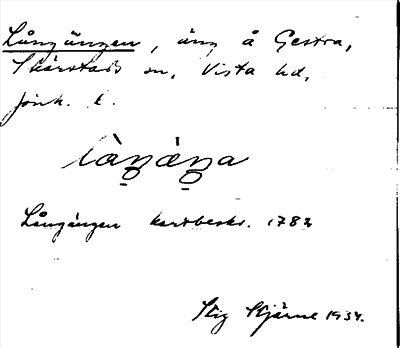 Långängen, äng å Gestra,
Skärstads sn, Vista hd,
Jönk. l.
Långängen kartbeskr. 1782
Stig Stjärne 1934.